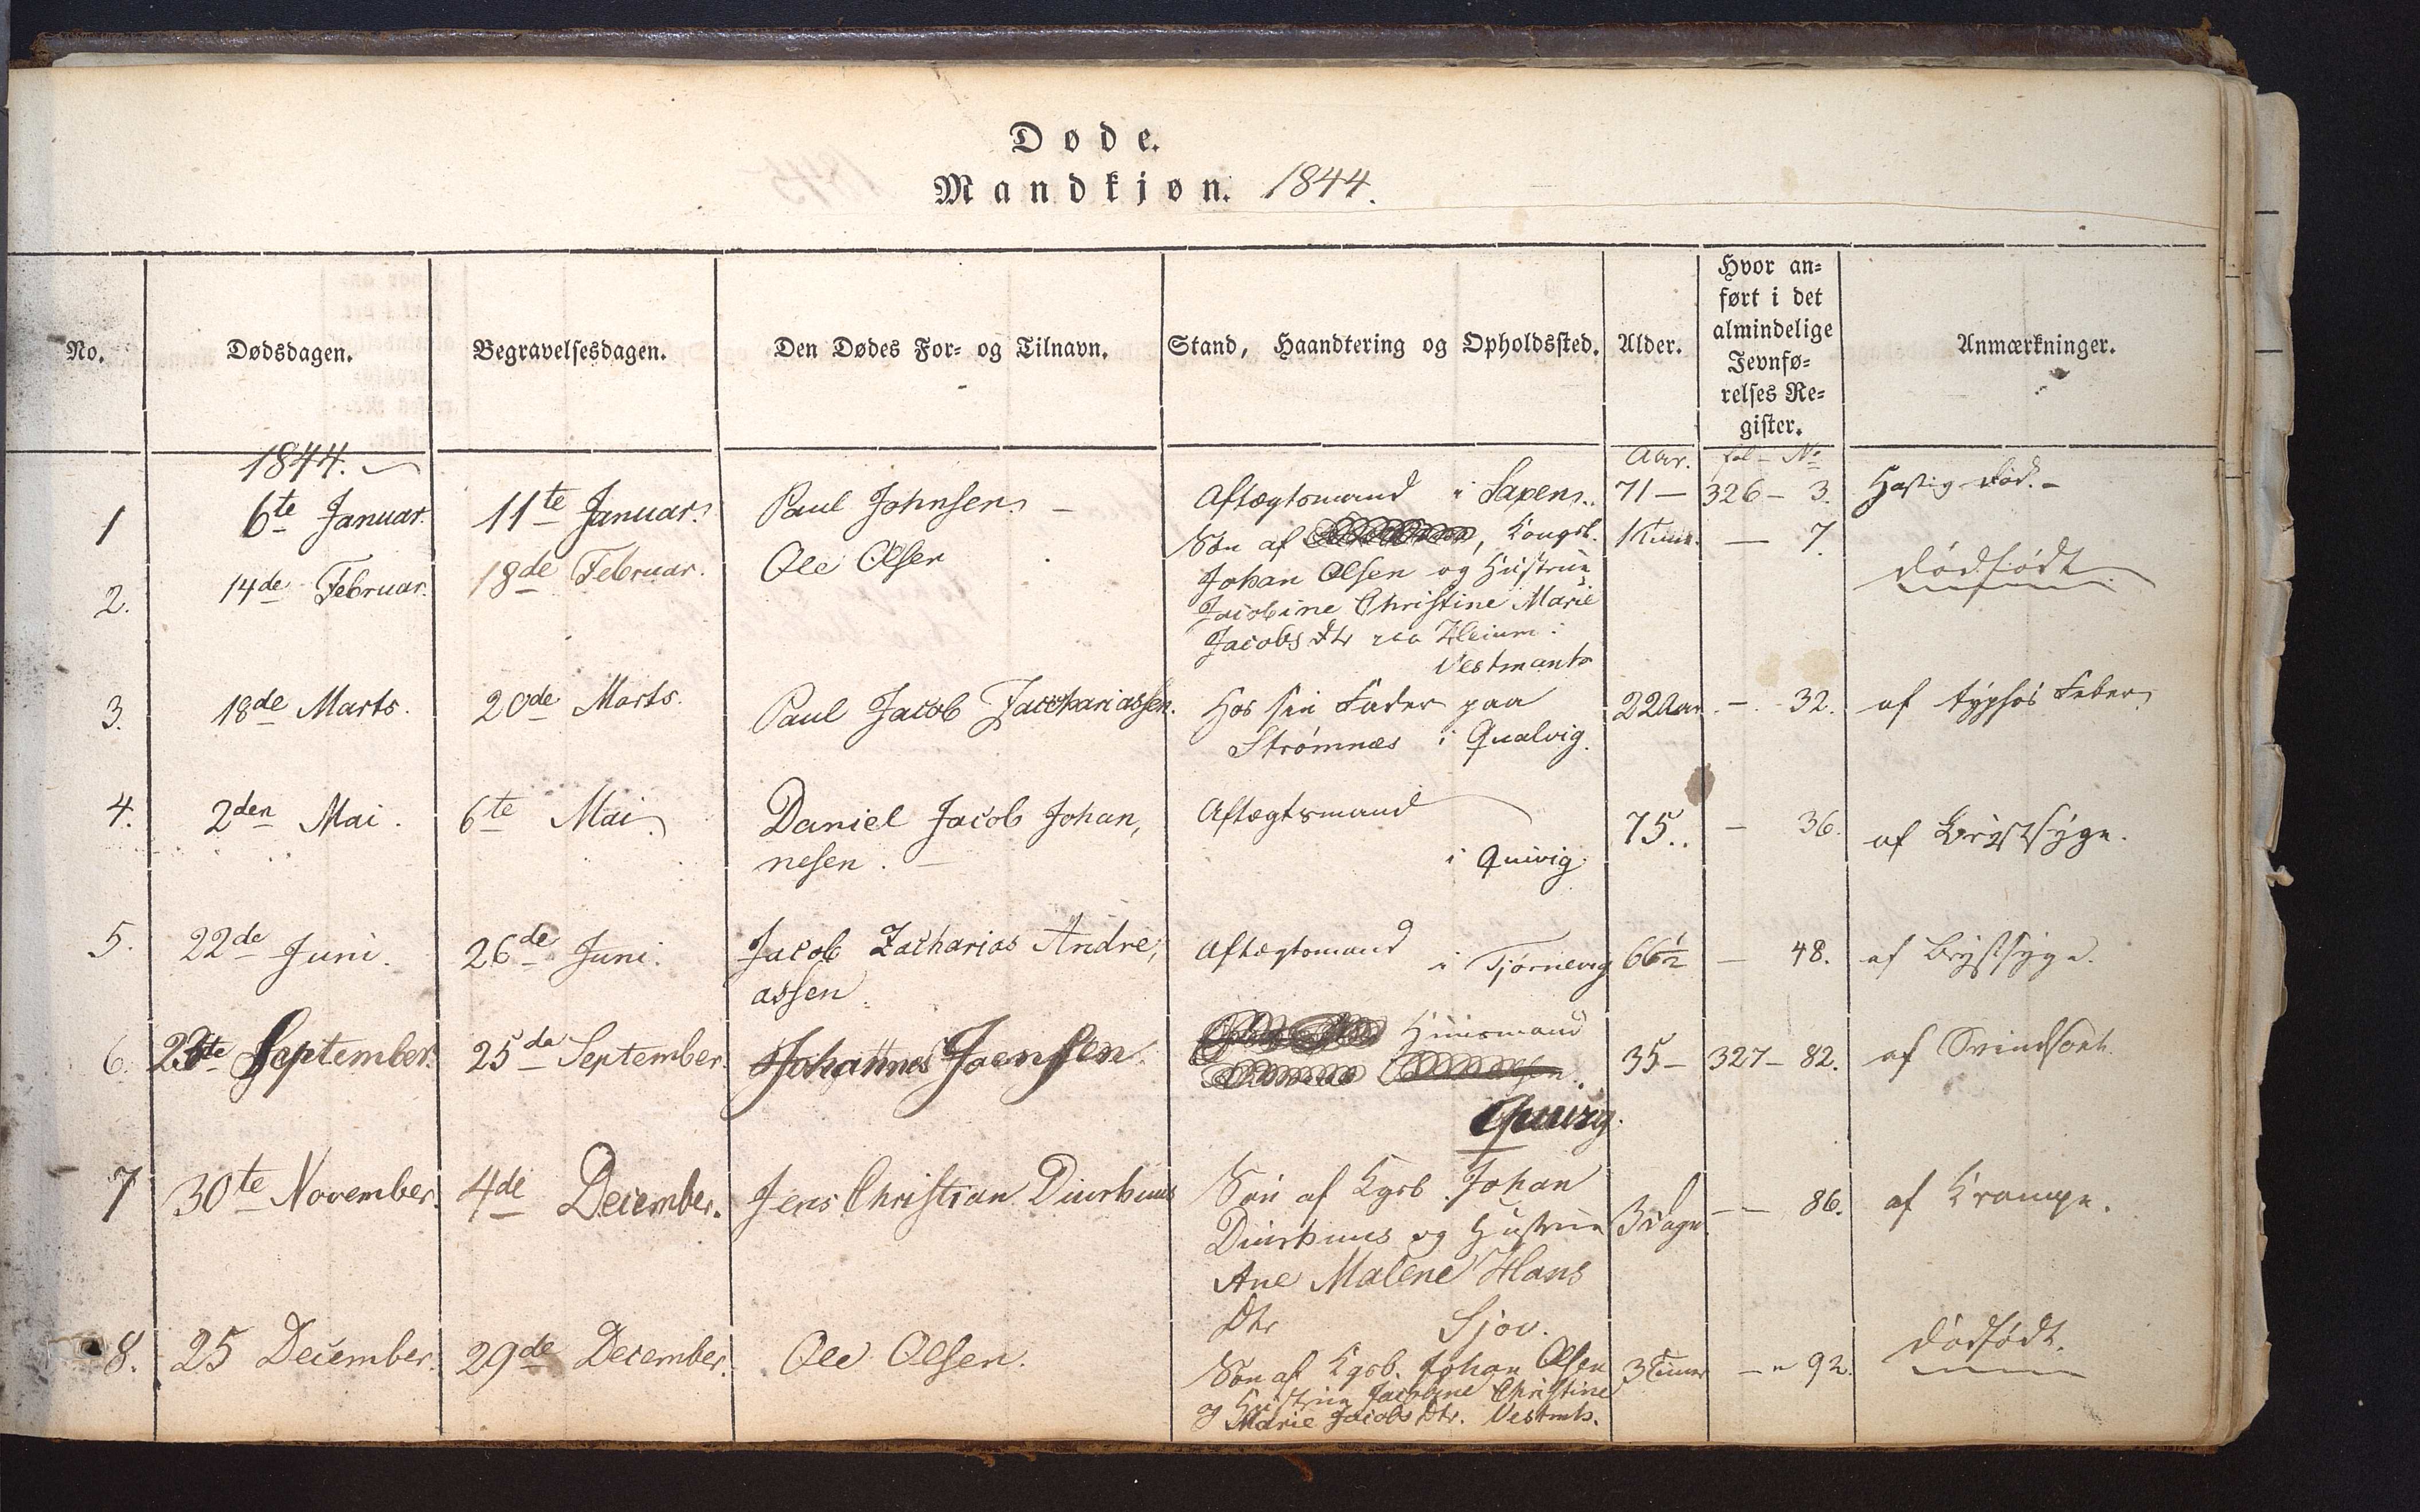 Døde.
Mandkjøn. 1844.
No.
Dødsdagen.
Begravelsesdagen.
Den Dødes For- og Tilnavn.
Stand, Haandtering og Opholdssted.
Alder.
Hvor an-
ført i det
almindelige
Jevnfø-
relses Re-
gister.
Anmærkninger.
1844.
Aar. fol - No
1 6te Januar. 11te Januar. Paul Johnsen Aftægtsmand i Saxen. 71 - 326 - 3. Hastig Død. -
2. 14de Februar. 18de Februar. Ole Olsen Søn af Kongsb. 1 Time. - 7. Dødfødt
Johan Olsen og Hustrue
Jacobine Christine Marie
Jacobs Dtr
Vestmanh
3. 18de Marts. 20de Marts. Paul Jacob Zachariassen. Hos sin Fader paa 22 Aar. - 32. af typhøs Feber
Strømnæs i Qualvig.
4. 2den Mai. 6te Mai. Daniel Jacob Johan, Aftægtsmand 75.. - 36. af Brystsyge.
nesen. i Quivig.
5. 22de Juni. 26de Juni. Jacob Zacharias Andre, Aftægtsmand i Tjørnevig 66 1/2 - 48. af Brystsyge.
assen.
6. September. 25de September. Johannes Joensen Huusmand 35 - 327 - 82. af Svindsot.
Quivig.
7 30te November. 4de December. Jens Christian Diurhuus Søn af Kgsb. Johan 3 Dage - 86. af Krampe.
Diurhuus og Hustrue
Ane Malene Hans
Dtr Sjov.
8. 25 December. 29de December. Ole Olsen. Søn af Kgsb. Johan Olsen 3 Timer - 92. Dødfødt.
og Hustrue Jacobine Christine
Marie Jacobs Dtr. Vestmh.